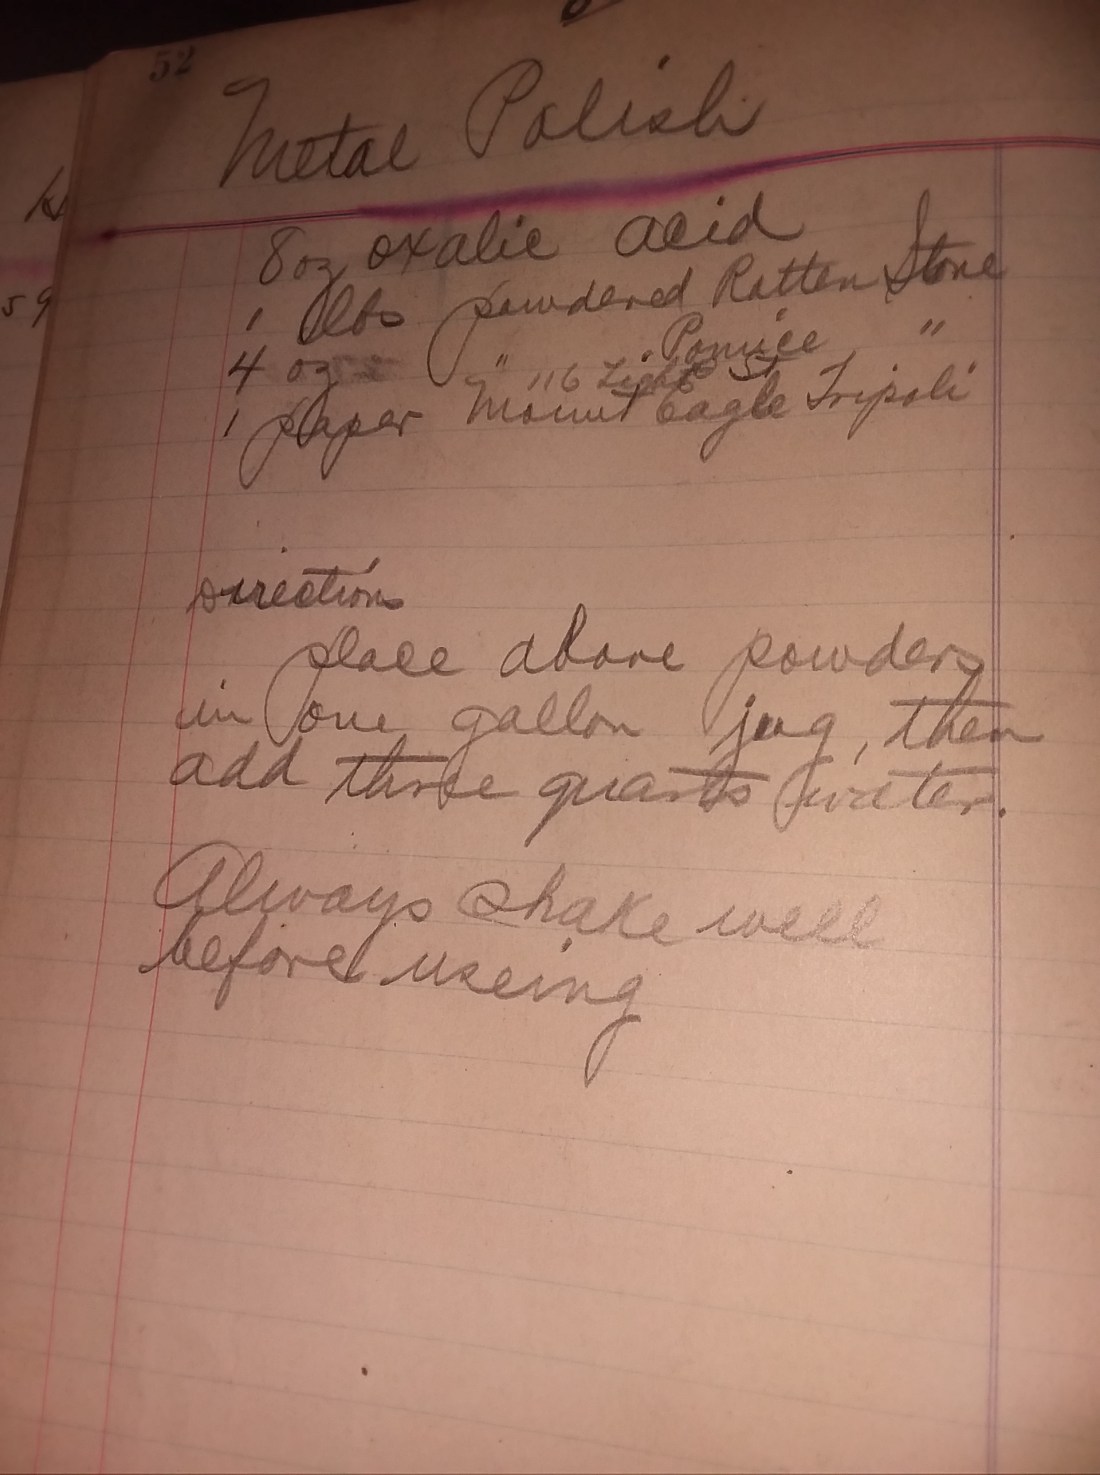 52
Metal Polish
8 oz oxalic acid
1 lbs powdered Rotten Stone
4 oz " Pomice "
116 Light St
1 paper Mount Eagle Tripoli
Directions
place above powders
in one gallon jug, then
add three quarts water.
Always shake well
before useing
59